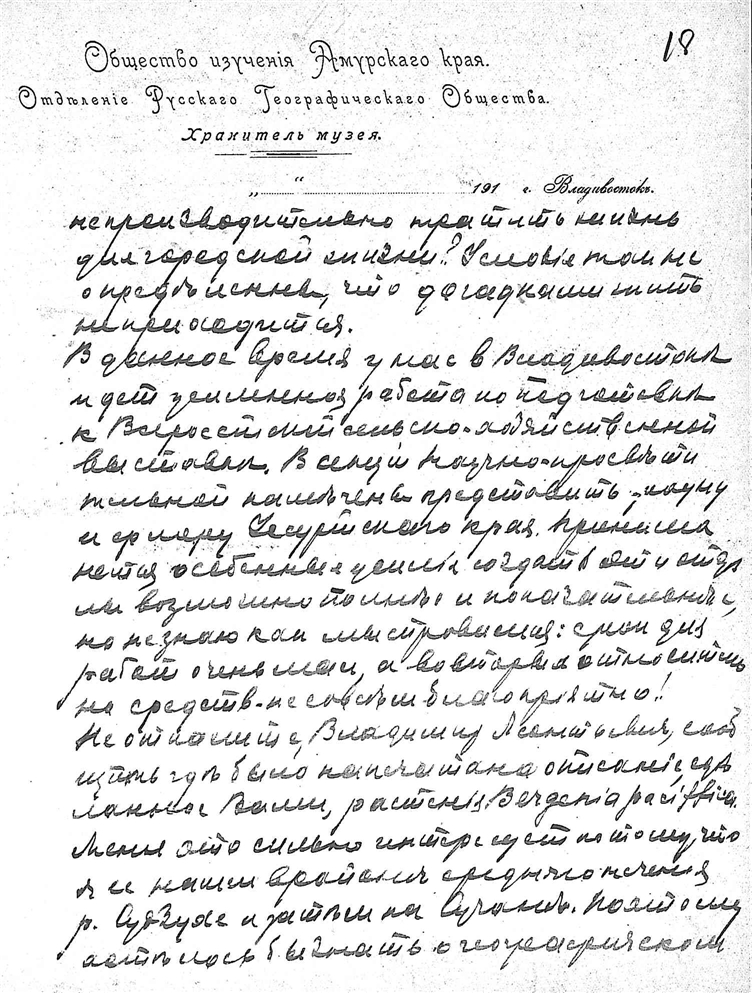 18
Общество изученія Амурскаго края.
Отдѣленіе Русскаго Географическаго Общества.
Хранитель музея.
„ “ 191 г. Владивостокъ.
непроизводительно тратить жизнь
для городской жизни? Условія так не
определенны, что догадками жить
не приходится.
В данное время у нас в Владивостокѣ
идет усиленная работа по подготовкѣ
к Всероссійской сельско-хозяйственной
выставкѣ. В секціи Научно-просвѣти
тельной намѣчены представить фауну
и флору Уссурійского края. Принима
ются особенныя усилія создать эти отдѣ
лы возможно полнѣе и показательнѣе,
но не знаю как мы справимся: срок для
работ очень мал, а во вторых относительно
средств - не совсѣм благопріятно!
Не откажите, Владимир Леонтьевич, сооб
щить гдѣ было напечатано описаніе, сдѣ
ланное Вами, растенія Bergenia pacifica.
Меня это сильно интересует потому, что
я ее нашел в районѣ средняго теченія
р. Судзухе и затѣм на Сучанѣ. Поэтому
хотѣлось бы знать о географическом